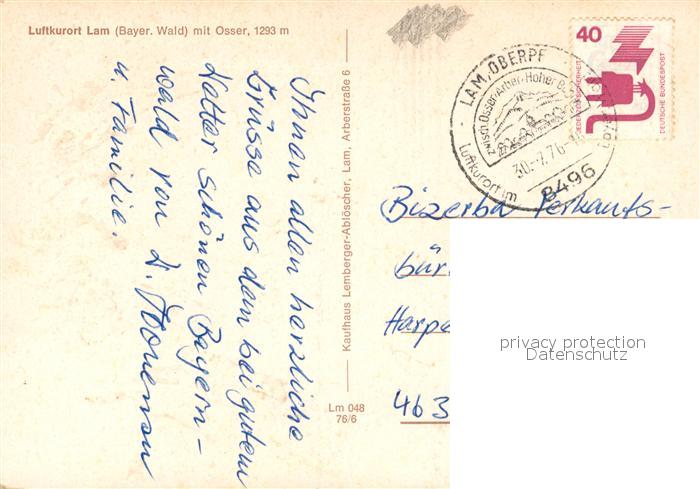 Luftkurort Lam (Bayer. Wald) mit Osser, 1293 m
Ihnen allen herzliche
Grüsse aus dem bei gutem
Wetter schönen Bayern-
wald von
u. Familie.
Kaufhaus Lemberger-Ablöscher, Lam, Arberstraße 6
Lm 048
76/6
LAM, OBERPF
zwisch. Osser-Arber-Hoher
Luftkurort im
30.-7.76
8496
40
JEDERZEIT SICHERHEIT
DEUTSCHE BUNDESPOST
Bizerba Verkaufs-
bür
Harpe
463
privacy protection
Datenschutz